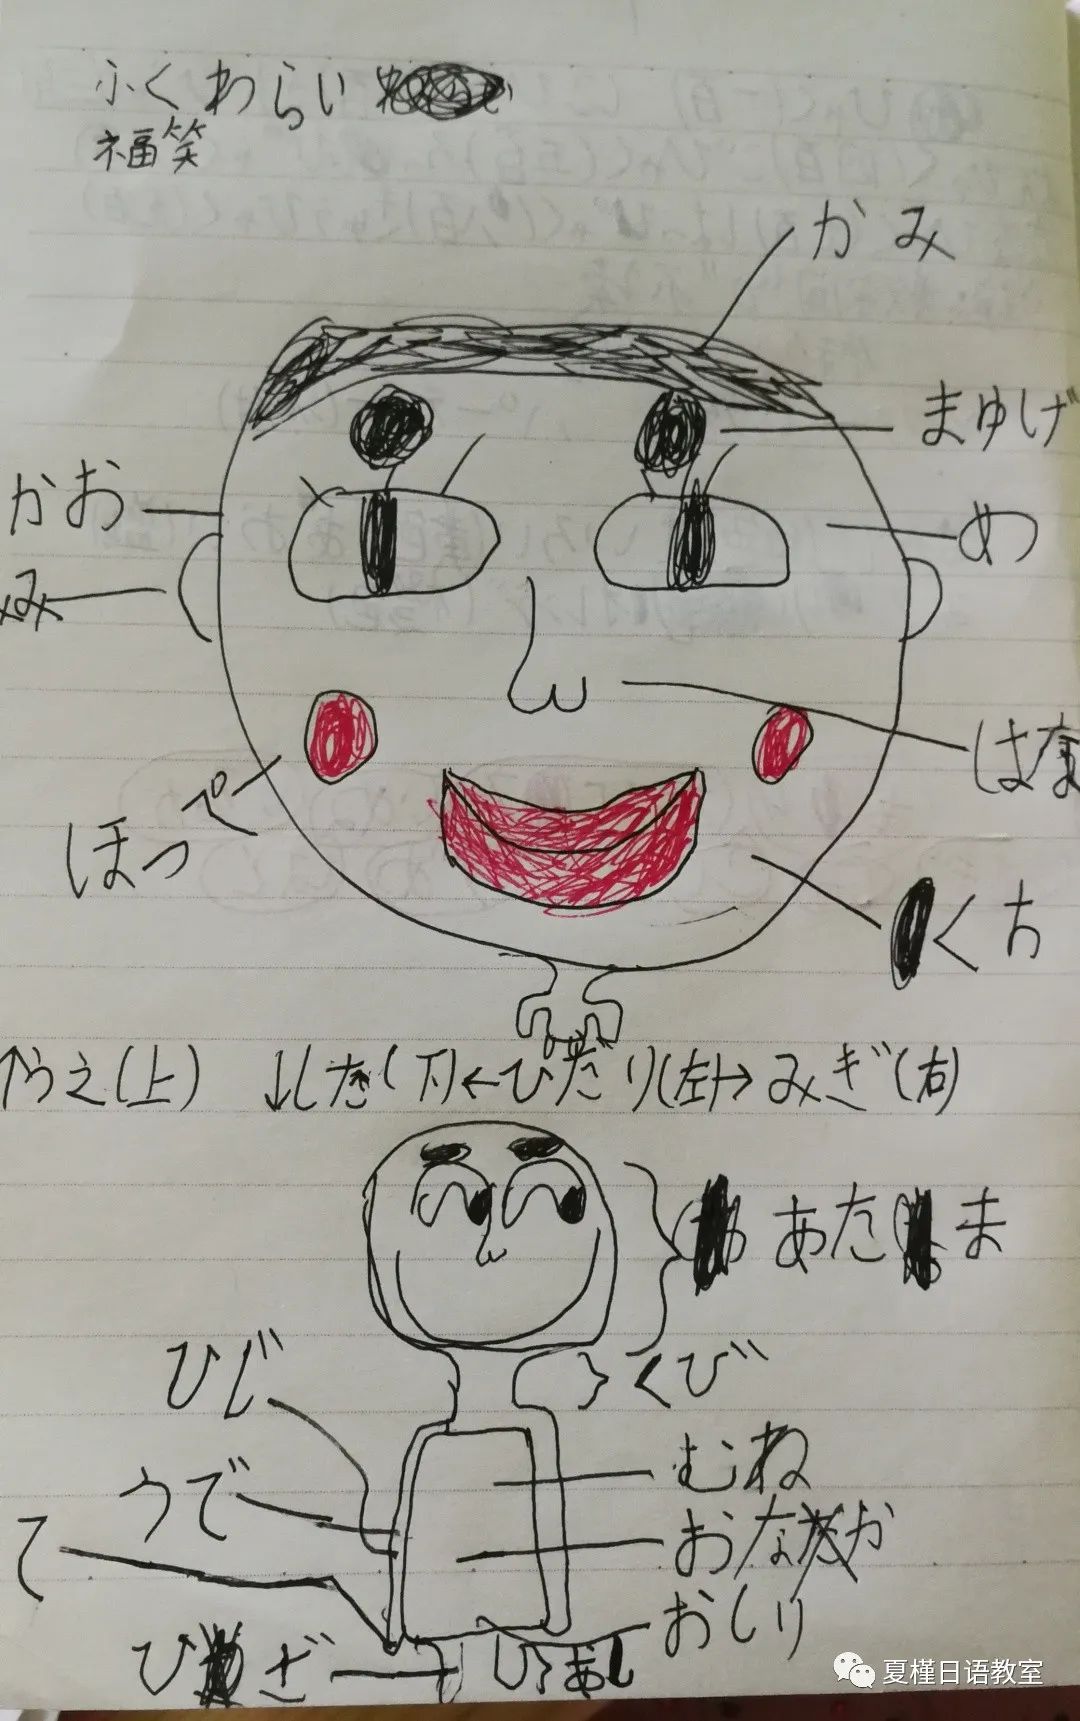 ふくわらい
福笑
かみ
まゆげ
かお
め
みみ
はな
ほっぺ
くち
↑うえ(上) ↓した(下)←ひだり(左)→みぎ(右)
あたま
くび
ひじ
むね
うで
おなか
て
おしり
ひざ
あし
夏槿日语教室